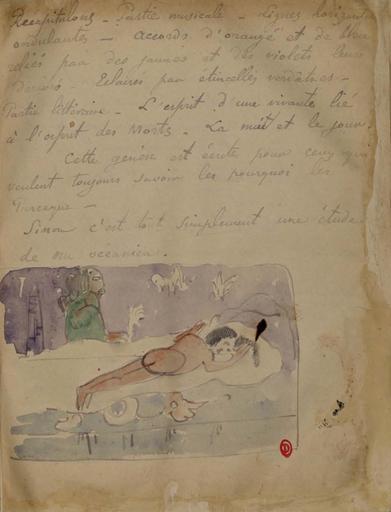 Recapitulons _ Partie musicale _ Lignes horizon
ondulantes _ accords d'orangé et de bleu
reliés par des jaunes et des violets leurs
dérivés. Eclairés par étincelles verdâtres _
Partie littéraire _ L'esprit d'une vivante lié
à l'esprit des Morts. La nuit et le jour.
Cette genèse est écrite pour ceux qui
veulent toujours savoir les pourquoi les
parceque _
Sinon c'est tout simplement une étude
de nu océanien.